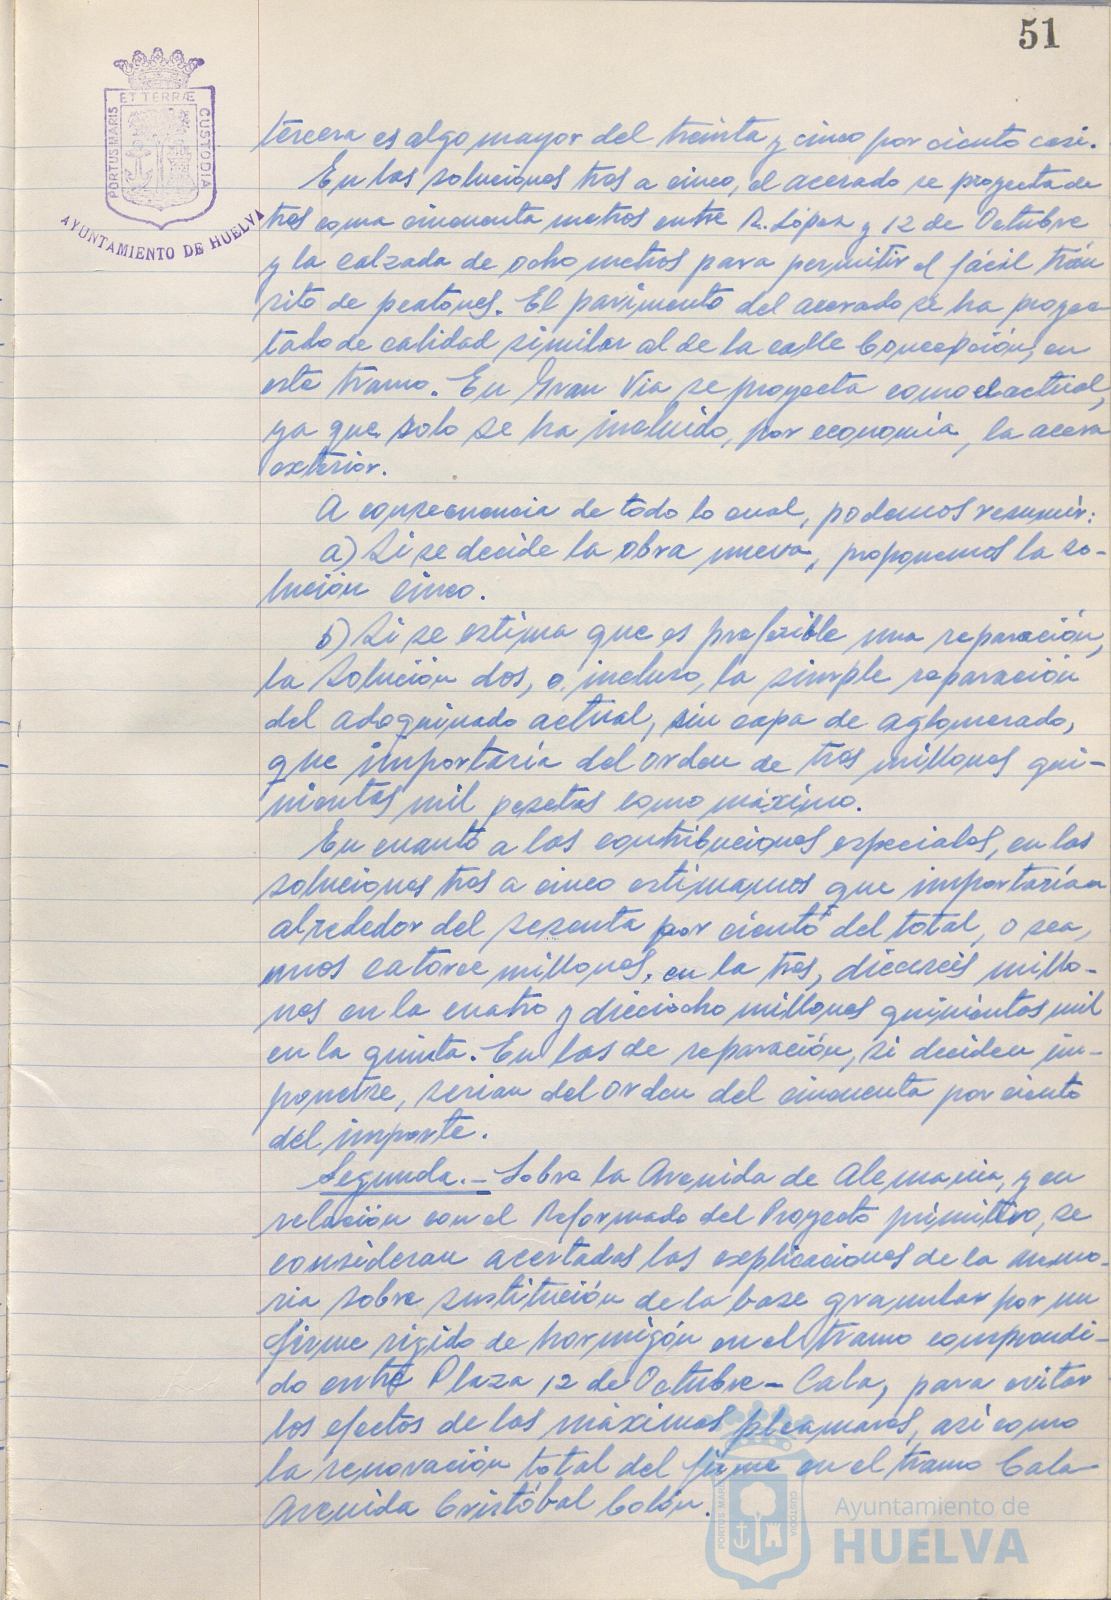 51
ET TERRÆ
PORTUS MARIS
CUSTODIA
AYUNTAMIENTO DE HUELVA
tercera es algo mayor del treinta y cinco por ciento casi.
En las soluciones tres a cinco, el acerado se proyecta de
tres coma cincuenta metros entre R. López y 12 de Octubre
y la calzada de ocho metros para permitir el fácil trán
sito de peatones. El pavimento del acerado se ha proyec
tado de calidad similar al de la calle Concepción, en
este tramo. En Gran Via se proyecta como el actual,
ya que solo se ha incluido, por economia, la acera
exterior.
A consecuencia de todo lo cual, podemos resumir:
a) Si se decide la obra nueva, proponemos la so-
lución cinco.
b) Si se estima que es preferible una reparación,
la Solución dos, o, incluso, la simple reparación
del adoquinado actual, sin capa de aglomerado,
que importaría del orden de tres millones qui-
nientas mil pesetas como máximo.
En cuanto a las contribuciones especiales, en las
soluciones tres a cinco estimamos que importarían
alrededor del sesenta por ciento del total, o sea,
unos catorce millones, en la tres, dieciseis millo-
nes en la cuatro y dieciocho millones quinientas mil
en la quinta. En las de reparación, si deciden im-
ponerse, serian del orden del cincuenta por ciento
del importe.
Segunda.- Sobre la Avenida de Alemania, y en
relación con el Reformado del Proyecto primitivo, se
consideran acertadas las explicaciones de la memo-
ria sobre sustitución de la base granular por un
firme rigido de hormigón en el tramo comprendi-
do entre Plaza 12 de Octubre - Cala, para evitar
los efectos de las máximas pleamares, asi como
la renovación total del firme en el tramo Cala-
Avenida Cristóbal Colón.
PORTUS MARIS
CUSTODIA
Ayuntamiento de
HUELVA